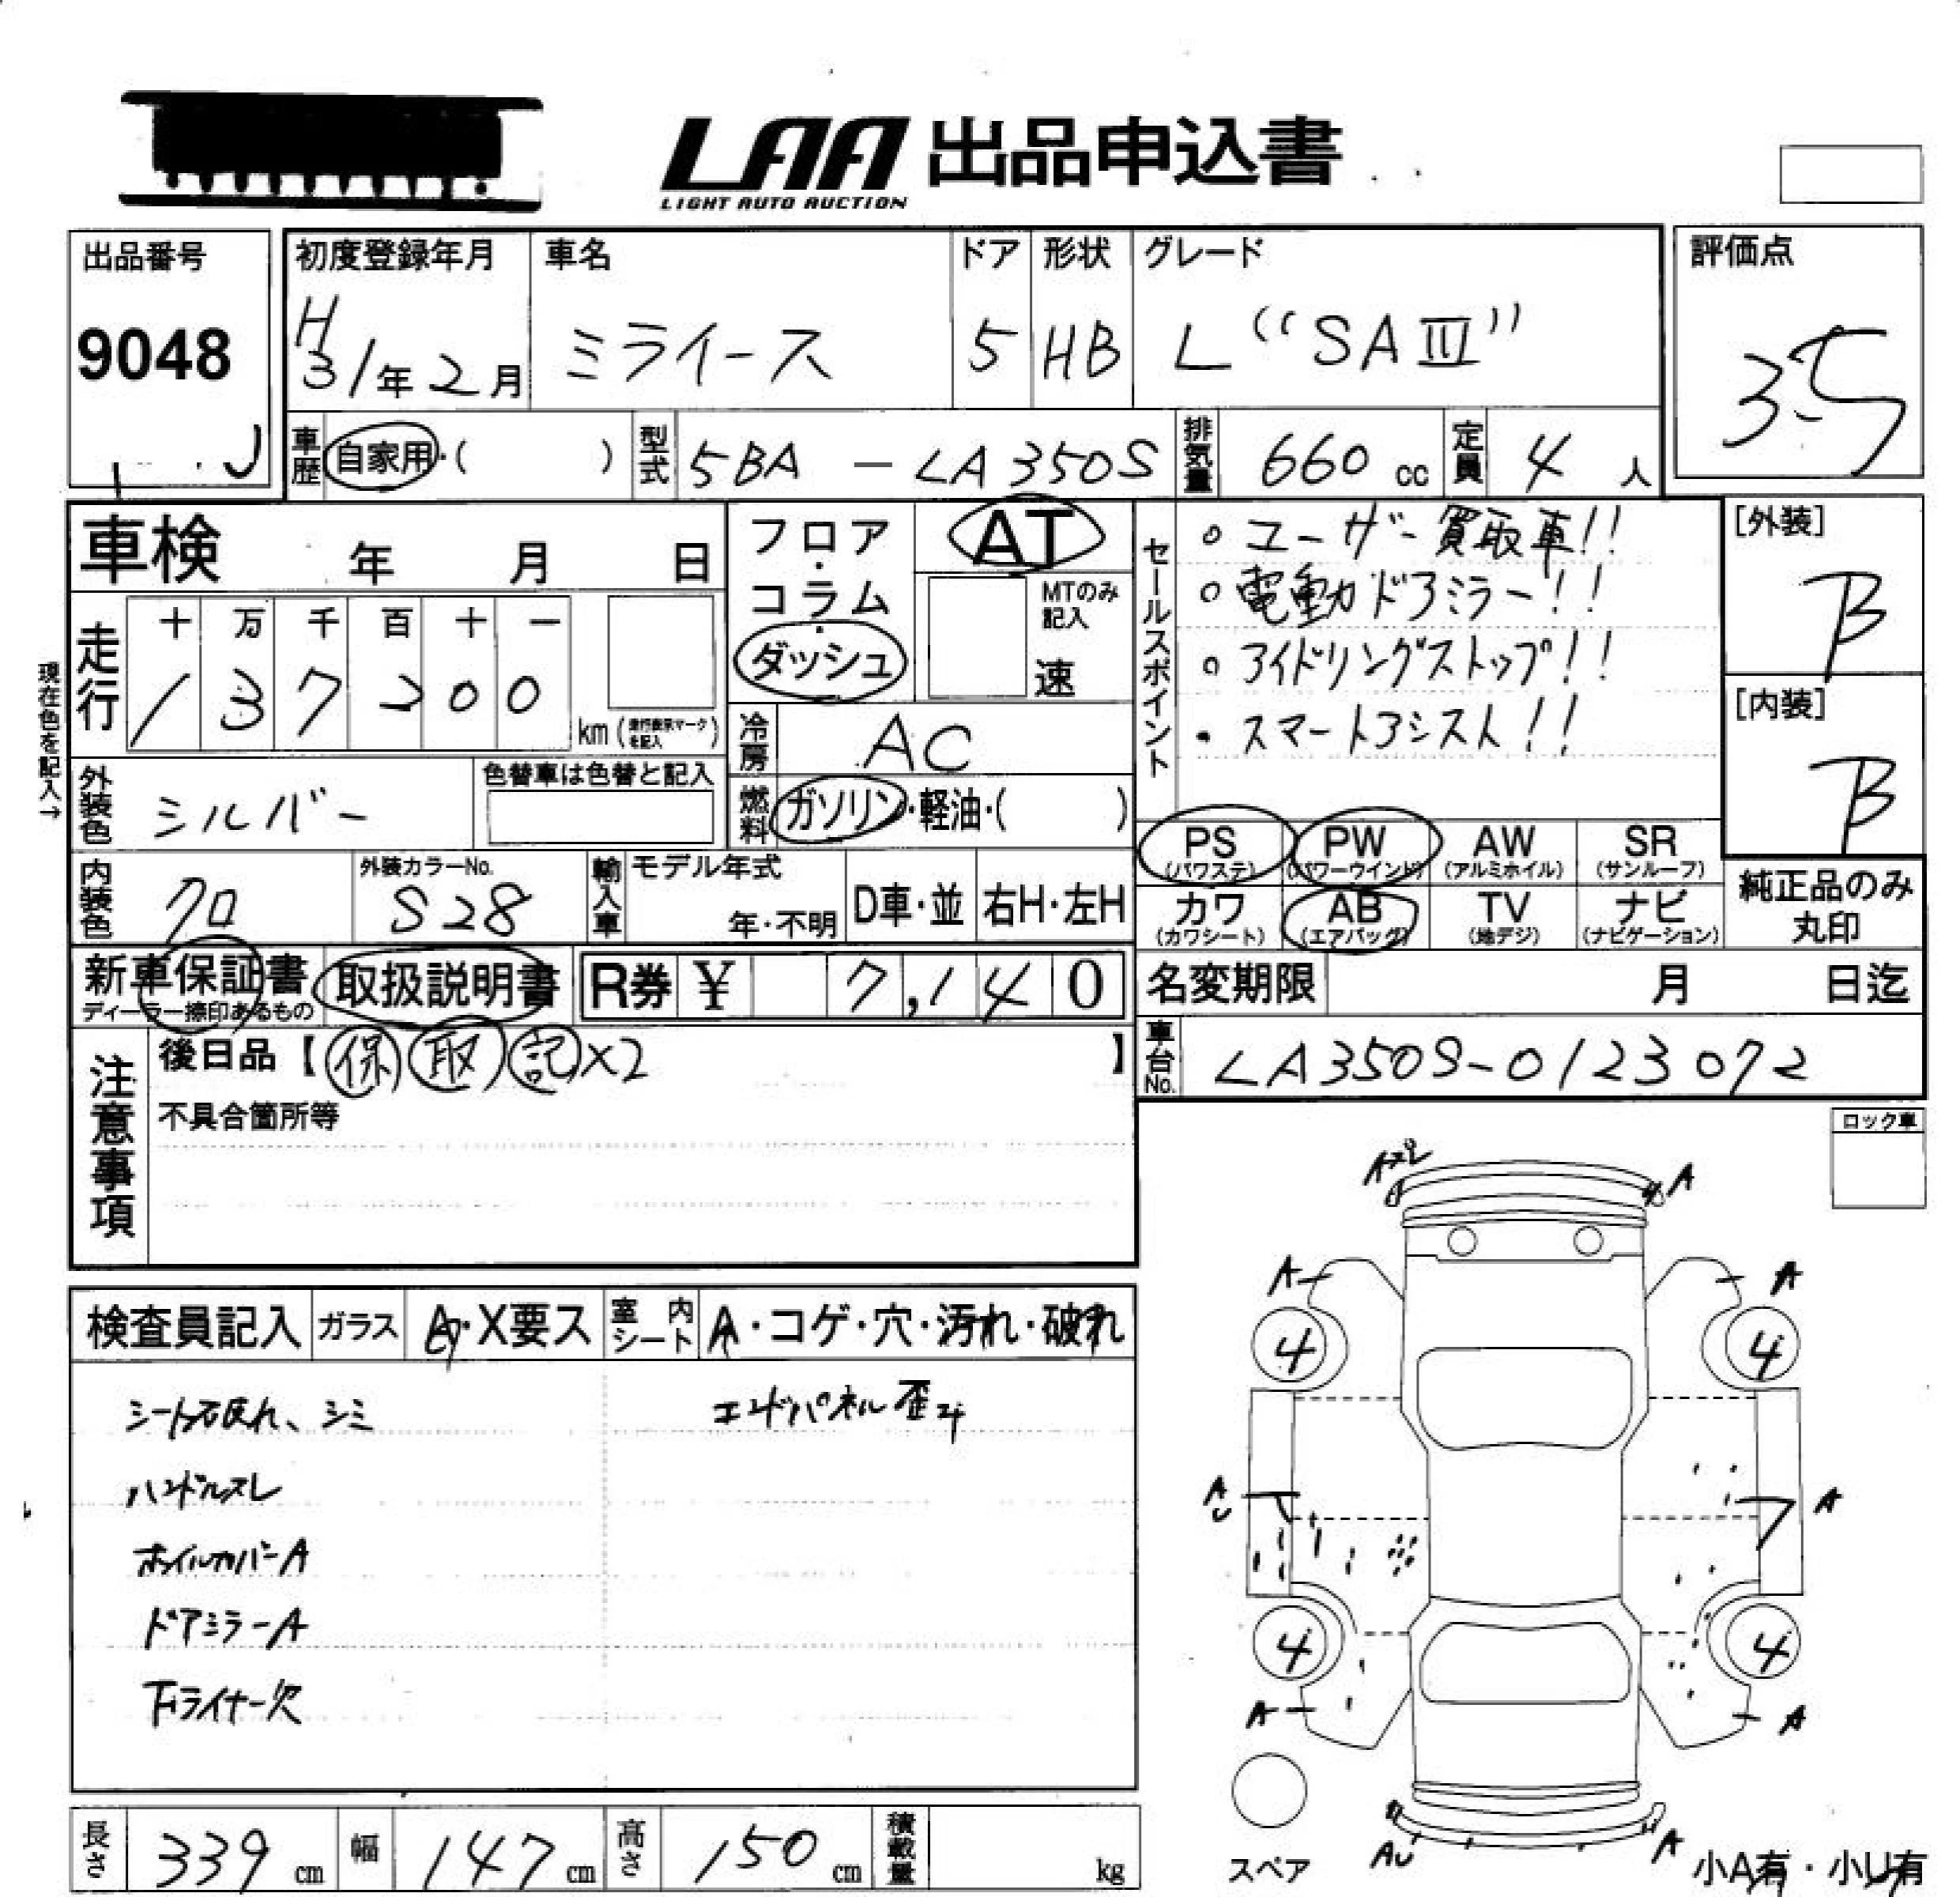 LAA 出品申込書
LIGHT AUTO AUCTION
出品番号
9048
初度登録年月
H31年2月
車名
ミライース
ドア
5
形状
HB
グレード
L "SAⅢ"
評価点
3.5
車歴
自家用・( )
型式
5BA - LA350S
排気量
660 cc
定員
4 人
車検 年 月 日
フロア・コラム・ダッシュ
AT
MTのみ記入
速
現在色を記入→
走行
十 万 千 百 十 一
1 3 7 2 0 0
km (走行表示マークを記入)
冷房
AC
外装色
シルバー
色替車は色替と記入
燃料
ガソリン・軽油・( )
内装色
クロ
外装カラーNo.
S28
輸入車
モデル年式
年・不明
D車・並
右H・左H
新車保証書
ディーラー捺印あるもの
取扱説明書
R券 ¥ 7,140
セールスポイント
○ ユーザー買取車!!
○ 電動ドアミラー!!
○ アイドリングストップ!!
・ スマートアシスト!!
[外装]
B
[内装]
B
PS (パワステ)
PW (パワーウインド)
AW (アルミホイル)
SR (サンルーフ)
カワ (カワシート)
AB (エアバッグ)
TV (地デジ)
ナビ (ナビゲーション)
純正品のみ丸印
名変期限 月 日迄
車台No.
LA350S-0123072
注意事項
後日品【保 取 記×2 】
不具合箇所等
ロック車
検査員記入
ガラス
A・X要ス
室内シート
A・コゲ・穴・汚れ・破れ
シート破れ、シミ
エンドパネル歪み
ハンドルスレ
ホイルカバーA
ドアミラーA
下ライナー欠
Aズレ
A
A
A
4
4
AU
A
4
4
A
A
AU
A
スペア
小A有・小U有
長さ
339 cm
幅
147 cm
高さ
150 cm
積載量
kg